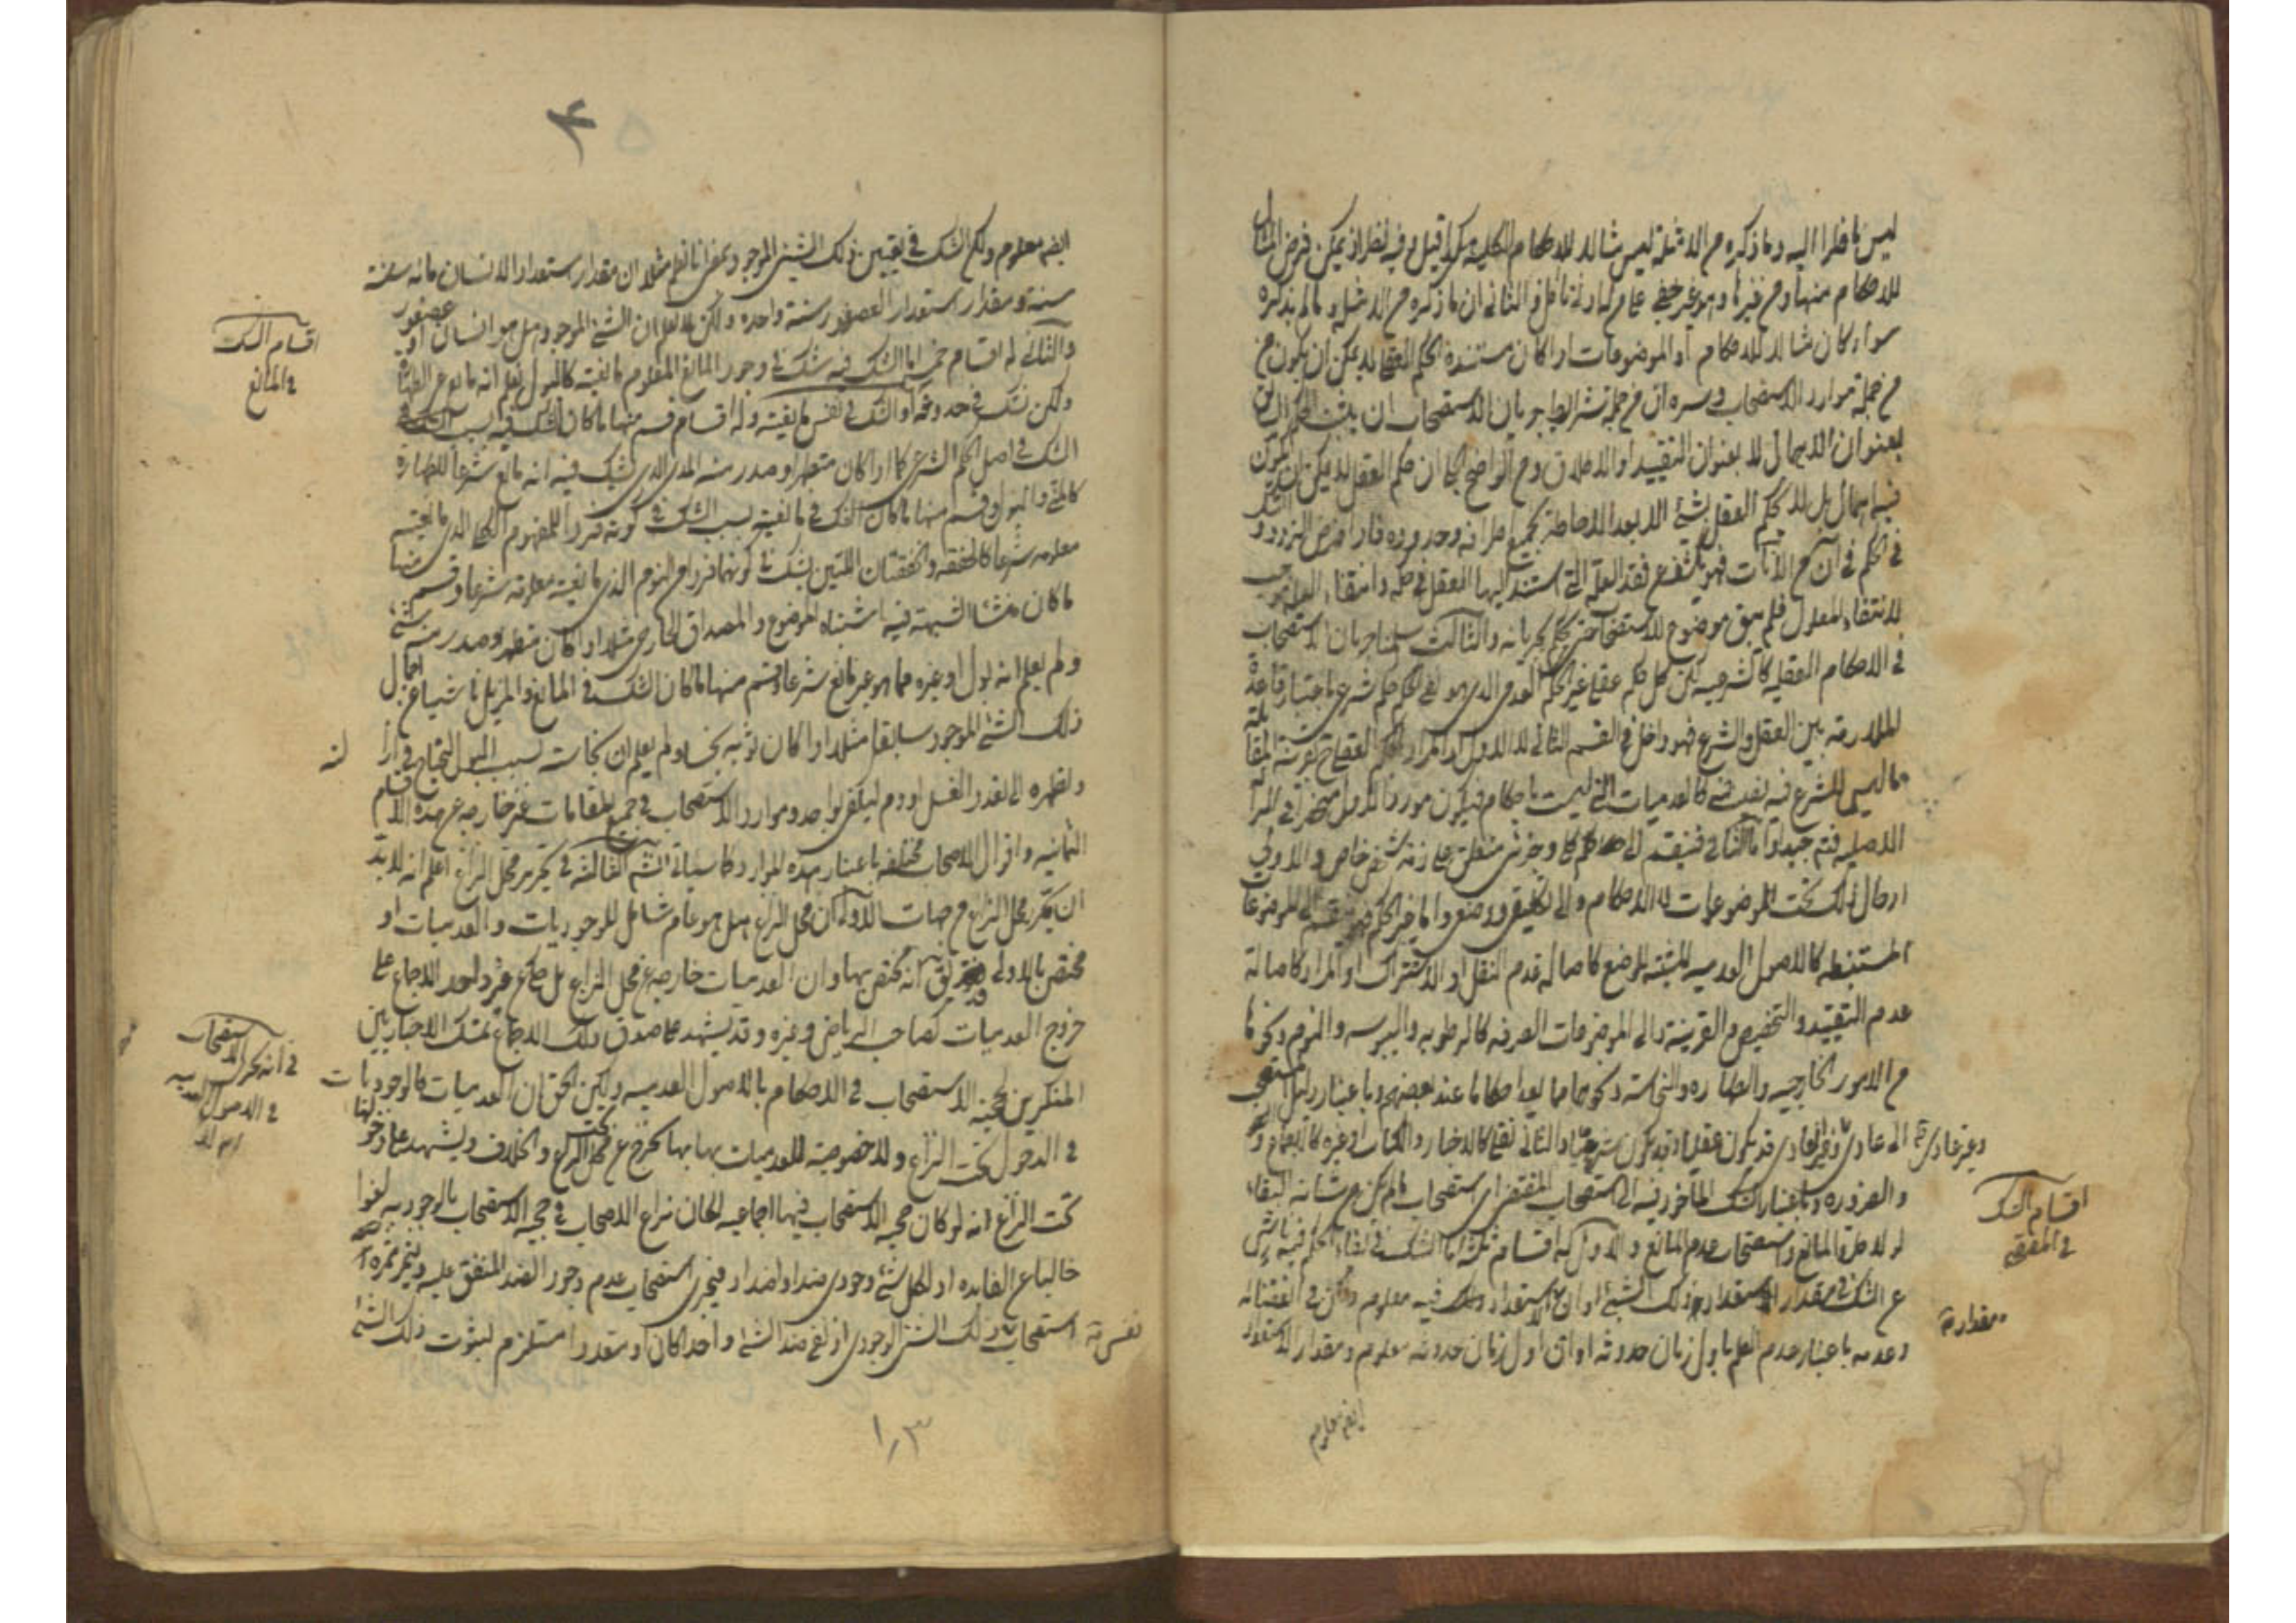 ليس ناظرا اليه وما ذكره من الامثلة ليس مثالا للاحكام الكلية هكذا قيل وفيه نظر اذ يمكن فرض المثال
للاحكام منها ومن غيرها وهو غير خفي على من له ادنى تامل و الثانى ان ما ذكره من الامثلة و ما لم يذكره
سواء كان مثالا للاحكام او الموضوعات اذا كان مستنده الحكم العقلى لا يمكن ان يكون من
من جملة موارد الاستصحاب و سره ان من جملة شرائط جريان الاستصحاب ان يثبت الحكم
بعنوان الاهمال لا بعنوان التقييد او الاطلاق ومن الواضح الجلى ان حكم العقل لا يمكن ان يكون
فيه اهمال بل لا يحكم العقل بشئ الا بعد الاحاطة بجميع اطرافه وحدوده فاذا فرض التردد و الشك
فى الحكم فى آن من الآنات فهو يكشف عن فقد العلة التى استند اليها العقل فى حكمه وانتفاء العلة موجب
لانتفاء المعلول فلم يبق موضوع للاستصحاب حتى يحكم بجريانه والثالث سلمنا جريان الاستصحاب
فى الاحكام العقلية كالشرعية لكن كل حكم عقلى غير الحكم العدمى الذى هو نفى الحكم حكم شرعى باعتبار قاعدة
الملازمة بين العقل والشرع فهو داخل فى القسم الثانى لا الاول اذ المراد من الحكم العقلى بقرينة المقابلة
ما ليس للشرع فيه كالعدميات التى ليست باحكام فيكون مورد الاول منحصرا فى البرائة
الاصلية فتم جيدا واما الثانى فينقسم الى حكم كلى و جزئى متعلق على ذمة شخص خاص و الاولى
ادخال ذلك تحت الموضوعات لا الاحكام و الى تكليفى ووضعى واما غير الحكم فينقسم الى الموضوعات
المستنبطه كالاصول العدميه المثبتة للوضع كاصالة عدم النقل او الاشتراك او المراد كاصالة
عدم التقييد و التخصيص و القرينة والى الموضوعات الصرفه كالرطوبه واليبوسه والنوم ونحوها
من الامور الخارجيه والطهاره والنجاسة ونحوهما مما يعد احكاما عند بعضهم و باعتبار دليل المستصحب
الى عادى و غير العادى قد يكون عقليا وقد يكون شرعيا و الثانى نقلى كالاخبار والكتاب او غيره كالاجماع
وغير عادى
و الضروره و باعتبار الشك الماخوذ فيه الى استصحاب المقتضى اى استصحاب ما لم يكن من شانه البقاء
لولا طرو المانع و استصحاب عدم المانع و الاول له اقسام ثلثة اما الشك فى بقاء الحكم فيه ناش
عن الشك فى مقدار استعداد ذلك الشئ او ان الاستعداد فيه معلوم ولكن فى انقضائه
وعدمه باعتبار عدم العلم باول زمان حدوثه او ان اول زمان حدوثه معلوم و مقدار الاستعداد
اقسام الشك
فى المقتضى
مقدار
ايضا معلوم
۴
ايضا معلوم ولكن الشك فى تعيين ذلك الشئ الموجود بمعنى انا نعلم مثلا ان مقدار استعداد الانسان مائه سنة
سنة و مقدار استعداد العصفور سنة واحده ولكن لا نعلم ان الشئ الموجود هل هو انسان او عصفور
والثانى له اقسام خمسة اما الشك فيه شك فى وجود المانع المعلوم مانعيته كالبول نعلم انه مانع عن الطهارة
ولكن نشك فى حدوثه او الشك فى نفس مانعيته وله اقسام قسم منها ما كان الشك فيه بسبب
الشك فى اصل الحكم الشرعى كما اذا كان متطهرا وصدر منه المذى الذى يشك فيه انه مانع شرعا للطهارة
كالمنى والبول وقسم منها ما كان الشك فى مانعيته بسبب الشك فى كونه فردا للمفهوم الكلى الذى مانعيته
معلومه شرعا كالخفقه والخفقتان اللتين نشك فى كونهما فردا من النوم الذى مانعيته معلومة شرعا و قسم منها
ما كان منشا الشبهة فيه اشتباه الموضوع و المصداق الخارجى مثلا اذا كان متطهرا وصدر منه شئ
ولم يعلم انه بول او غيره مما هو غير مانع شرعا وقسم منها ما كان الشك فى المانع والمزيل ناشيا عن اجمال
ذلك الشئ الموجود سابقا مثلا اذا كان ثوبه نجسا ولم يعلم ان نجاسته بسبب البول المحتاج فى ازالته
وتطهره الى تعدد الغسل او دم ليكفى بواحد و موارد الاستصحاب فى جميع المقامات غير خارجه عن هذه الاقسام
الثمانيه و اقوال الاصحاب مختلفه باعتبار هذه الموارد كما سياتى القسم الثالثه فى تحرير محل النزاع اعلم انه لا بد
ان يحرر محل النزاع من جهات الاولى ان محل النزاع هل هو عام شامل للوجوديات و العدميات او
مختص بالاولى فقد يق انه مختص بها وان العدميات خارجه عن محل النزاع بل حكى عن غير واحد الاجماع على
خروج العدميات كصاحب الرياض وغيره و قد يشهد على صدق ذلك الاجماع تمسك الاخباريين
المنكرين لحجية الاستصحاب فى الاحكام بالاصول العدميه ولكن الحق ان العدميات كالوجوديات
فى الدخول تحت النزاع ولا خصوصية للعدميات بها يخرج عن تحت النزاع والخلاف ويشهد على دخولها
تحت النزاع انه لو كان حجية الاستصحاب فيها اجماعيه لكان نزاع الاصحاب فى حجية الاستصحاب بالوجوديه لغوا
خاليا عن الفايده اذ لكل شئ وجودى ضد او اضداد فيجرى استصحاب عدم وجود الضد المتفق عليه ويثمر ثمرة
استصحاب ذلك الشئ الوجودى اذ نفى ضد الشئ واحدا كان او متعددا مستلزم لثبوت ذلك الشئ
نفس
اقسام الشك
فى المانع
فى انه يجرى الاستصحاب
فى الاصول العدميه
ام لا
۱۰۳